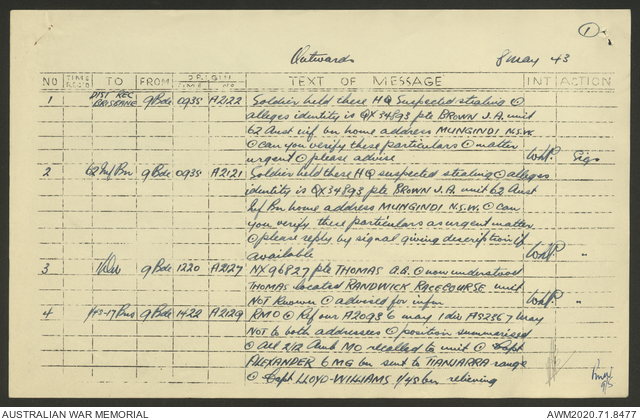 1
Outwards 8 May 43
NO TIME REC'D TO FROM ORIGIN TIME NO TEXT OF MESSAGE INT ACTION
1 DIST REC BRISBANE 9 Bde 0935 A2122 Soldier held these HQ suspected stealing O
alleges identity is QX 34893 pte BROWN J.A. unit
62 Aust inf bn home address MUNGINDI N.S.W.
O can you verify these particulars O matter
urgent O please advise WHP. Sigs
2 62 Inf Bn 9 Bde 0935 A2121 Soldier held these HQ suspected stealing O alleges
identity is QX 34893 pte BROWN J.A. unit 62 Aust
Inf Bn home address MUNGINDI N.S.W. O can
you verify these particulars as urgent matter
O please reply by signal giving description if
available WHP. "
3 1 Div 9 Bde 1220 A2127 NX 96827 pte THOMAS A.G. O now understood
THOMAS located RANDWICK RACECOURSE unit
NOT known O advised for infm WHP. "
4 1/45-17 Bns 9 Bde 1422 A2129 RMO O Ref our A2098 6 may 1 div A5256 7 may
NOT to both addressees O position summarised
O All 2/2 Amb MO recalled to unit O Capt
ALEXANDER 6 MG bn sent to TIANJARRA range
O Capt LLOYD-WILLIAMS 1/45 bn relieving
AUSTRALIAN WAR MEMORIAL AWM2020.71.8477